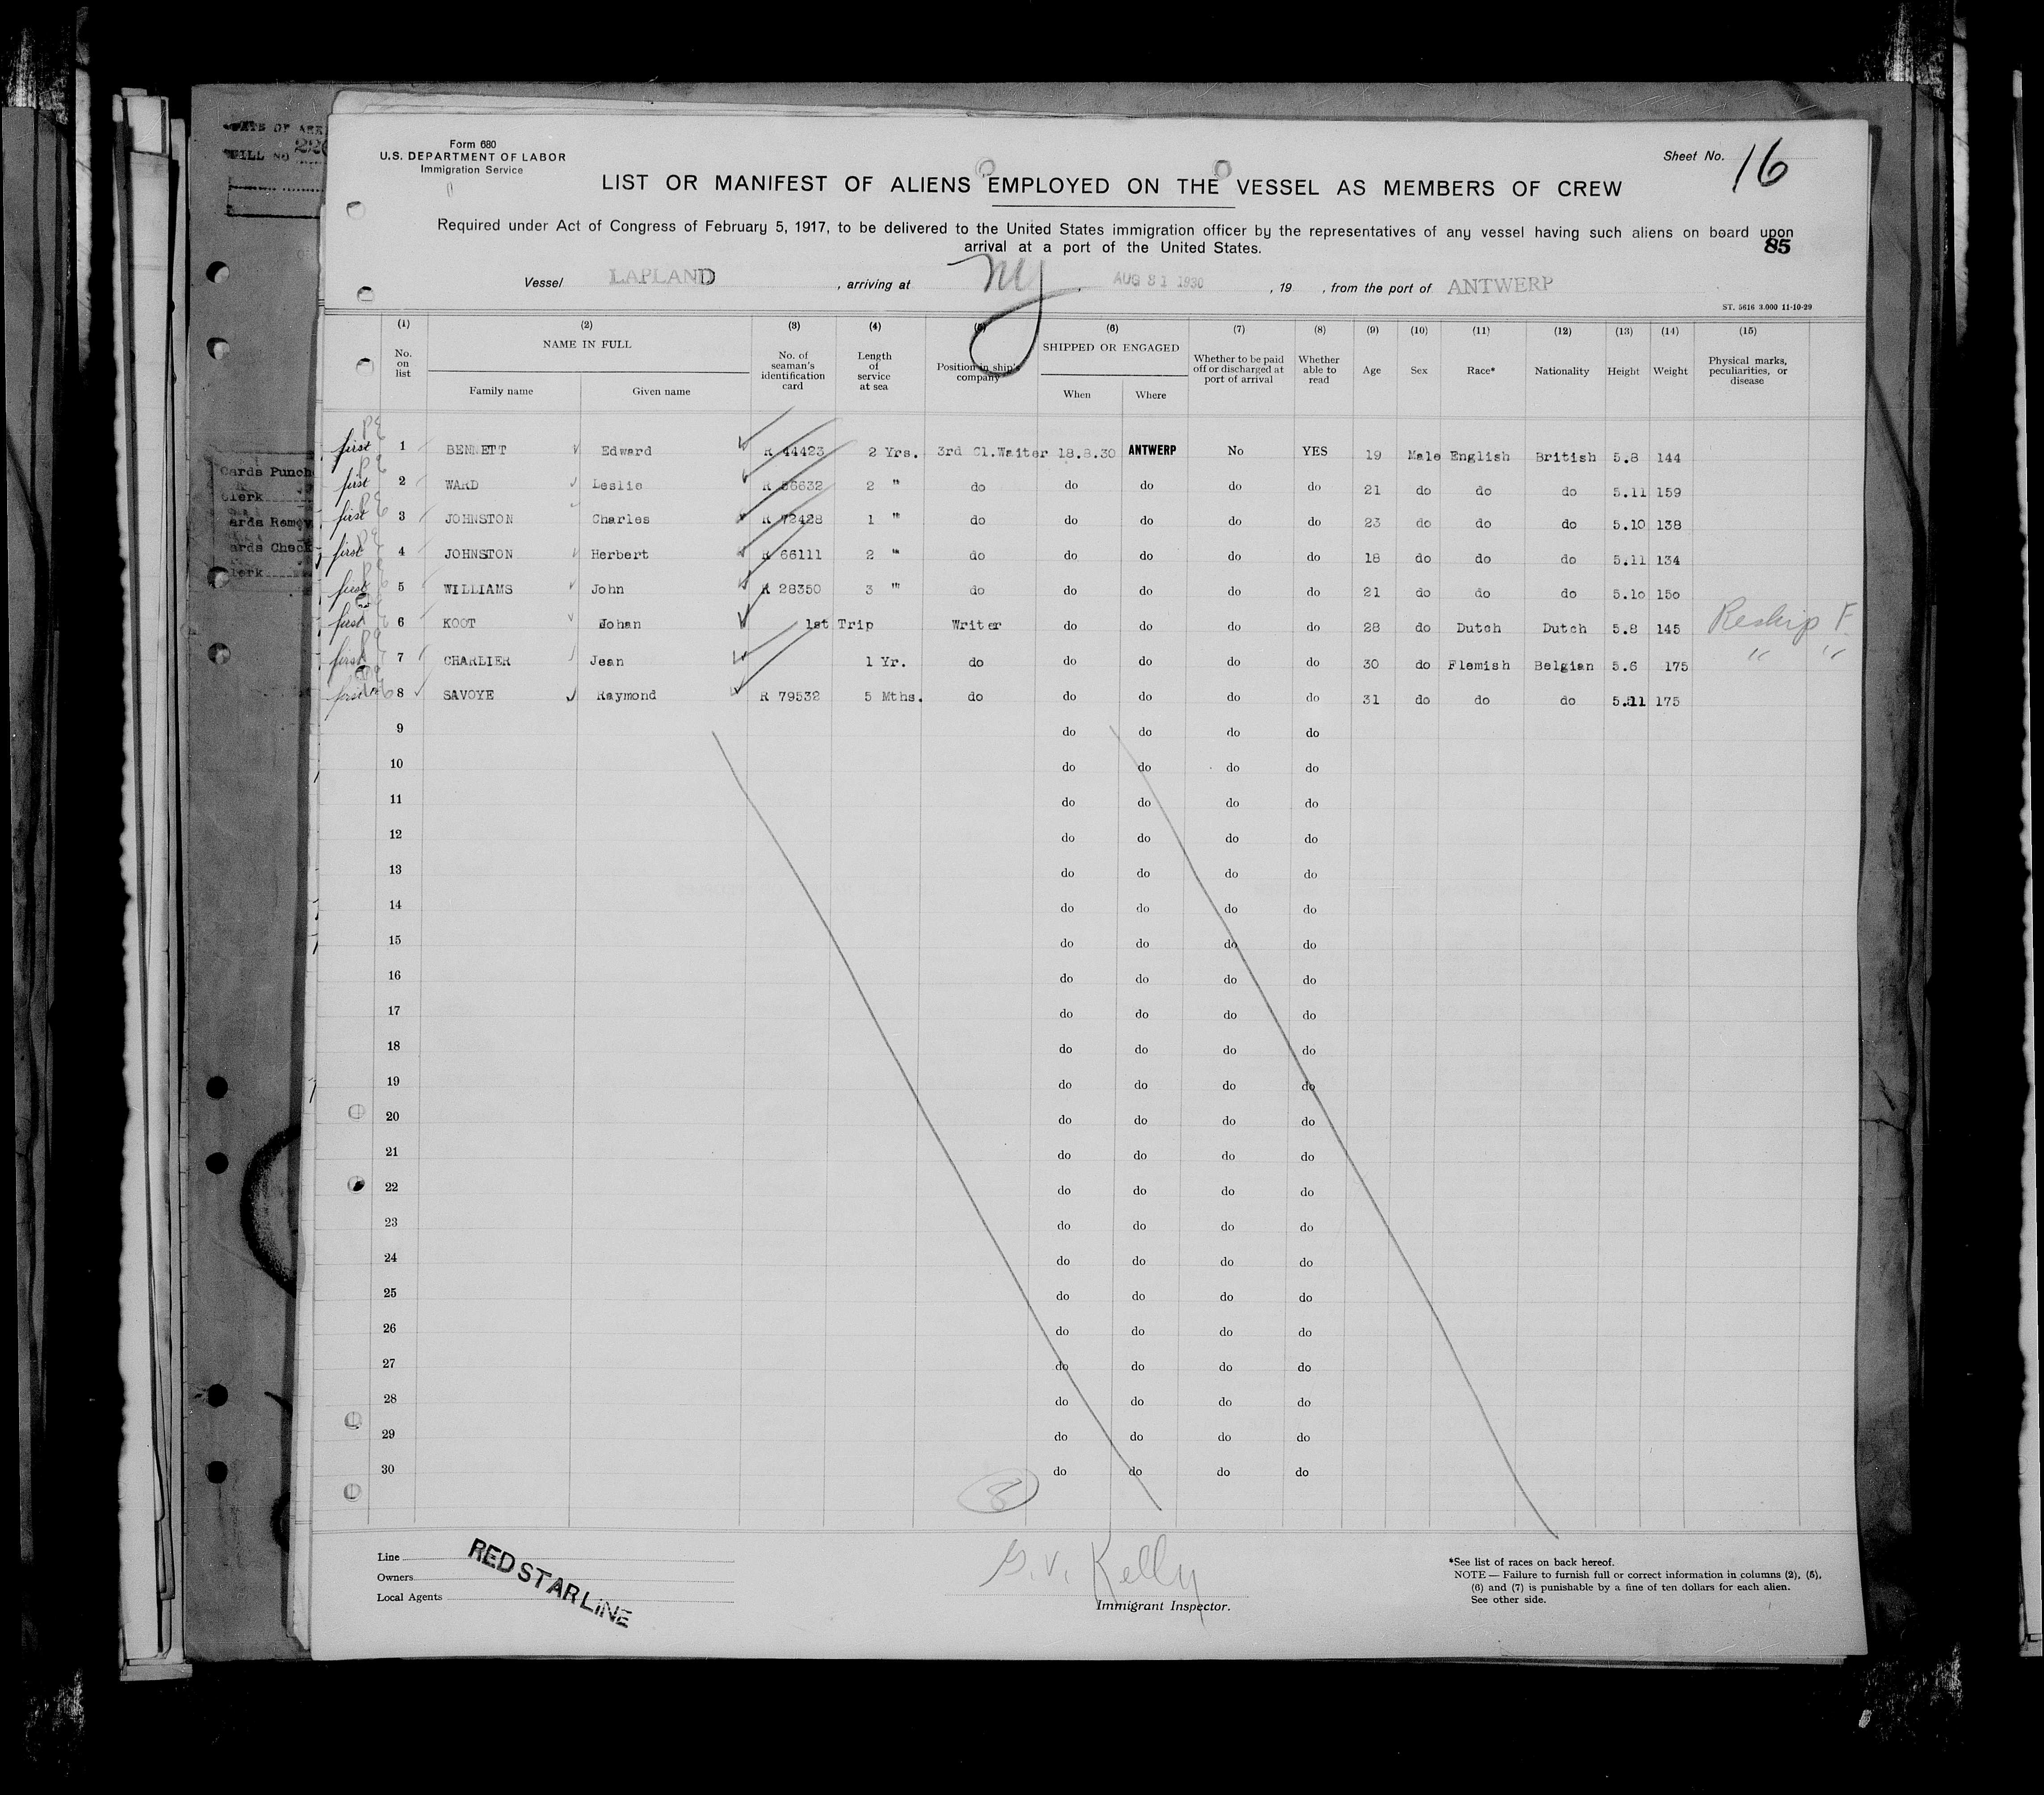 Form 680
U.S. DEPARTMENT OF LABOR
Immigration Service
Sheet No. 16
LIST OR MANIFEST OF ALIENS EMPLOYED ON THE VESSEL AS MEMBERS OF CREW
Required under Act of Congress of February 5, 1917, to be delivered to the United States immigration officer by the representatives of any vessel having such aliens on board upon
arrival at a port of the United States.
85
Vessel LAPLAND , arriving at NY , AUG 31 1930 , 19 , from the port of ANTWERP
ST. 5616 3.000 11-10-29
(1) (2) (3) (4) (5) (6) (7) (8) (9) (10) (11) (12) (13) (14) (15)
No. on list NAME IN FULL Family name Given name No. of seaman's identification card Length of service at sea Position in ship's company SHIPPED OR ENGAGED When Where Whether to be paid off or discharged at port of arrival Whether able to read Age Sex Race* Nationality Height Weight Physical marks, peculiarities, or disease
first 1 BENNETT Edward R 44423 2 Yrs. 3rd Cl.Waiter 18.8.30 ANTWERP No YES 19 Male English British 5.8 144
first 2 WARD Leslie R 56632 2 " do do do do do 21 do do do 5.11 159
first 3 JOHNSTON Charles R 72428 1 " do do do do do 23 do do do 5.10 138
first 4 JOHNSTON Herbert R 66111 2 " do do do do do 18 do do do 5.11 134
first 5 WILLIAMS John R 28350 3 " do do do do do 21 do do do 5.10 150
first 6 KOOT Johan 1st Trip Writer do do do do 28 do Dutch Dutch 5.8 145 Reship F.
first 7 CHARLIER Jean 1 Yr. do do do do do 30 do Flemish Belgian 5.6 175 " "
first 8 SAVOYE Raymond R 79532 5 Mths. do do do do do 31 do do do 5.11 175
9 do do do do
10 do do do do
11 do do do do
12 do do do do
13 do do do do
14 do do do do
15 do do do do
16 do do do do
17 do do do do
18 do do do do
19 do do do do
20 do do do do
21 do do do do
22 do do do do
23 do do do do
24 do do do do
25 do do do do
26 do do do do
27 do do do do
28 do do do do
29 do do do do
30 do do do do
8
Line
Owners
Local Agents
RED STAR LINE
G. V. Kelly
Immigrant Inspector.
*See list of races on back hereof.
NOTE — Failure to furnish full or correct information in columns (2), (5),
(6) and (7) is punishable by a fine of ten dollars for each alien.
See other side.